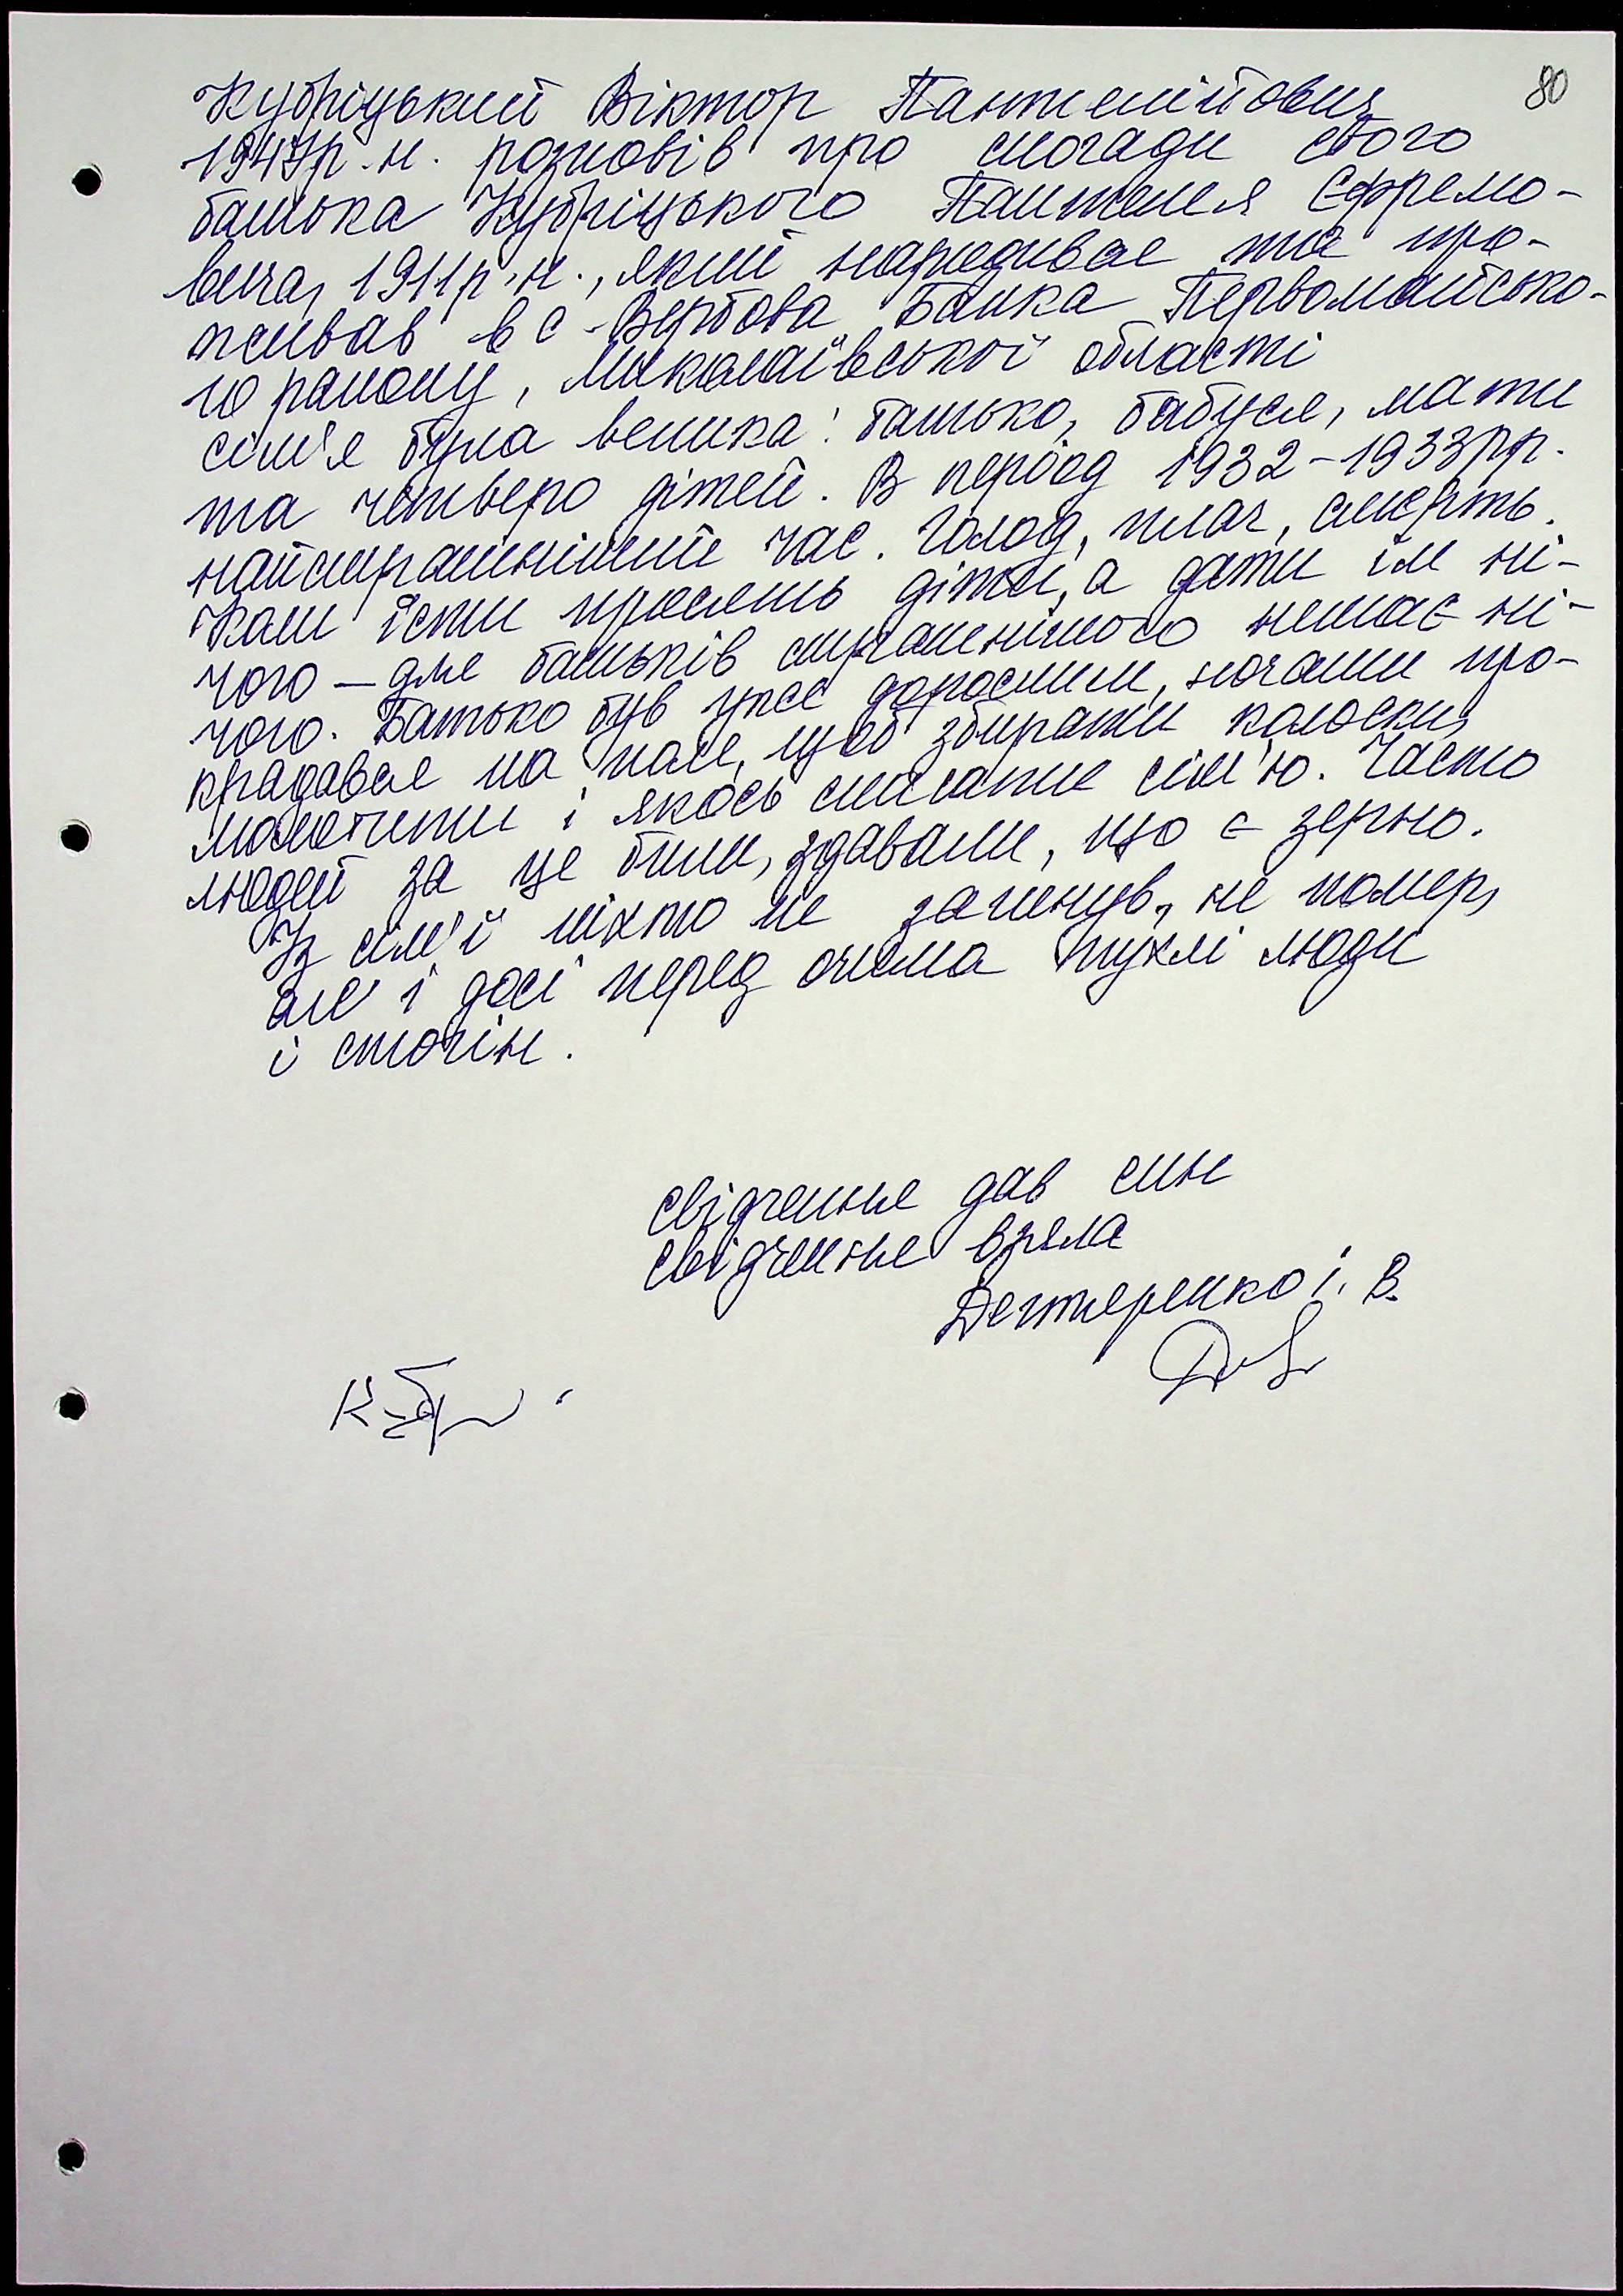 80
Кубріцький Віктор Пантелійович,
1947р.н. розповів про спогади свого
батька Кубріцького Пантелея Єфремо-
вича, 1911р.н., який народився та про-
живав в с. Вербова Балка Первомайсько-
го району, Миколаївської області
Сім'я була велика: батько, бабуся, мати
та четверо дітей. В період 1932-1933рр.
найстрашніший час. Голод, плач, смерть.
Коли їсти просять діти, а дати їм ні-
чого — для батьків страшнішого немає ні-
чого. Батько був уже дорослим, ночами про-
крадався на поле, щоб збирати колоски,
молотити і якось спасати сім'ю. Часто
людей за це били, здавали, що є зерно.
Із сім'ї ніхто не загинув, не помер,
але і досі перед очима пухлі люди
і стогін.
Свідчення дав син
Свідчення взяла
Дегтяренко І. В.